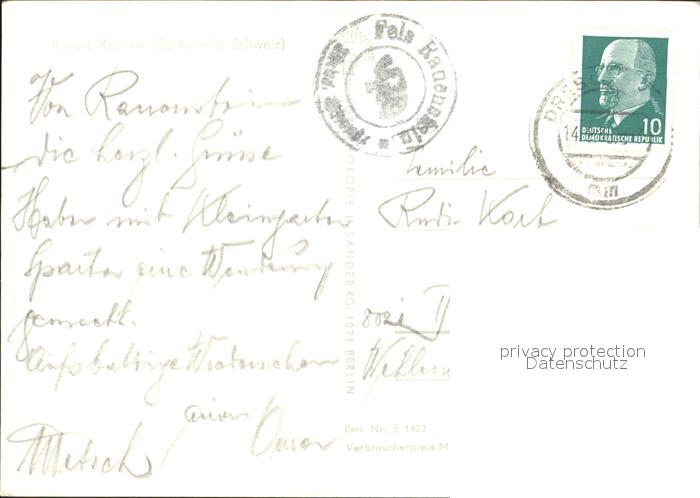 Kurort Rathen (Sächsische Schweiz)
Von Rauenstein
die herzl. Grüsse
Haben mit Kleingarten
Sparten eine Wanderung
gemacht.
Auf baldige Wiedersehen
Fels Rauenstein
DRES
14
10
DEUTSCHE
DEMOKRATISCHE REPUBLIK
Familie
Rudi Kort
8021 II
SANDER KG, 1071 BERLIN
Best.-Nr. S 1422
Verbraucherpreis M
privacy protection
Datenschutz